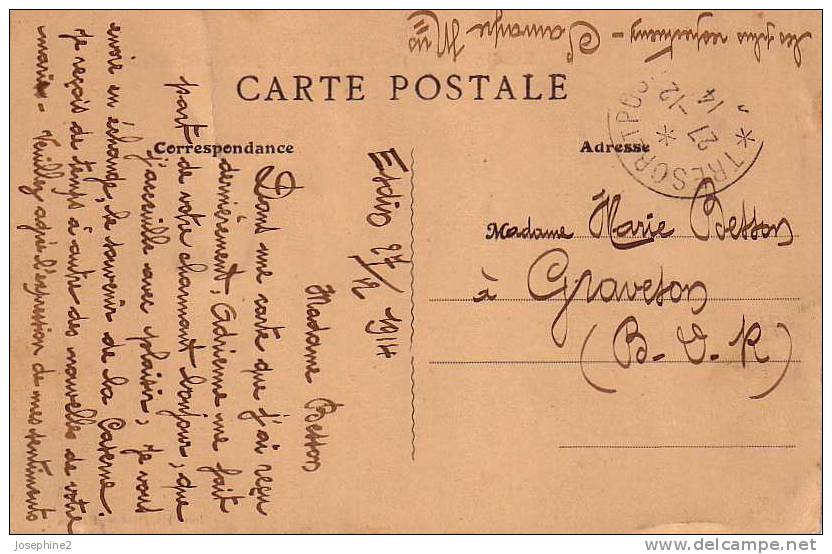 CARTE POSTALE
Correspondance
Adresse
TRESOR
27-12
14
Madame Marie Besson
à Graveson
(B-d-R)
27/12 1914
Madame Besson
Dans une carte que j'ai reçu
dernièrement, Adrienne me fait
part de votre charmant bonjour, que
j'accueille avec plaisir, je vous
envoie en échange, le souvenir de la Caserne.
Je reçois de temps à autre des nouvelles de votre
mari - Veuillez agréer l'expression de mes sentiments
les plus respectueux -
josephine2
delcampe.net